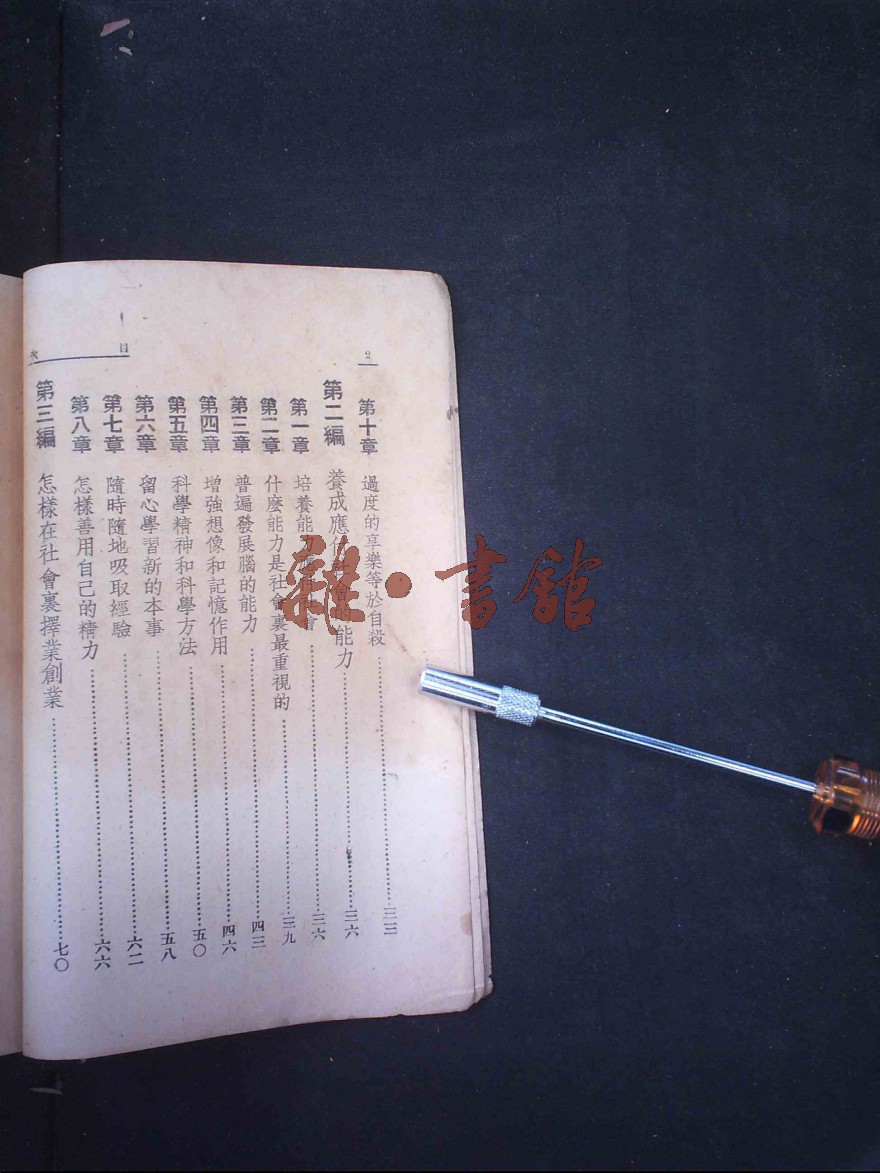 2
目次
第十章 過度的享樂等於自殺 三三
第二編 養成應付社會的能力 三六
第一章 培養能力應付社會 三六
第二章 什麼能力是社會裏最重視的 三九
第三章 普遍發展腦的能力 四三
第四章 增強想像和記憶作用 四六
第五章 科學精神和科學方法 五〇
第六章 留心學習新的本事 五八
第七章 隨時隨地吸取經驗 六二
第八章 怎樣善用自己的精力 六六
第三編 怎樣在社會裏擇業創業 七〇
雜·書館